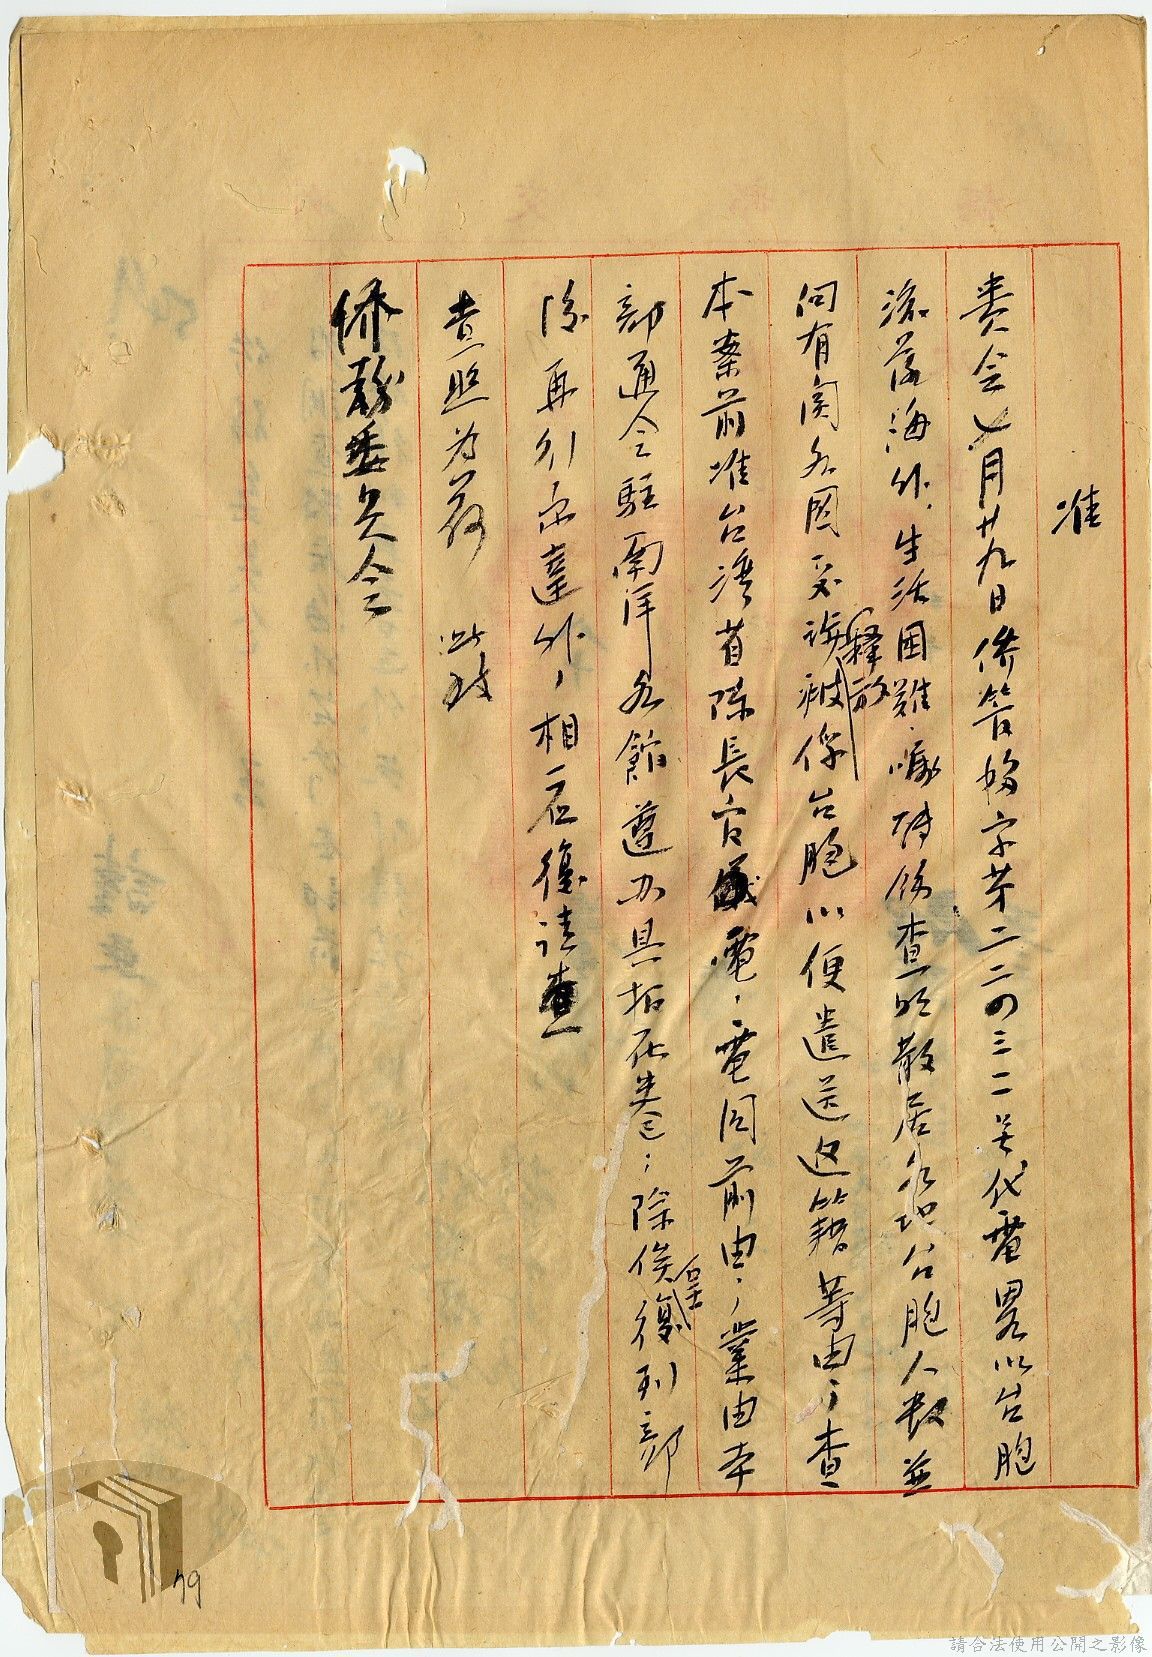 准
貴会七月廿九日僑管移字第二二四三二号代電畧以台胞
流落海外，生活困難，囑轉飭查明散居各地台胞人数並
向有関各国交涉釋放被俘台胞以便遣送返籍等由；查
本案前准台湾省陈長官儀電，電同前由，業由本
部通令駐南洋各館遵办具报在卷；除俟呈復到部
後再行宋達外，相应復請查
查照为荷 此致
侨務委員会
79
請合法使用公開之影像